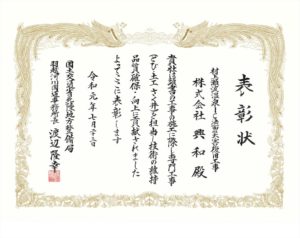 表彰状
株式会社 興和 殿
貴社は頭書の工事の施工に際し専門工事
を担当し技術の維持
品質確保・向上に貢献されました
よってここに表彰します
令和元年七月
国土交通省北陸地方整備局
羽越河川国道事務所長 渡辺隆幸